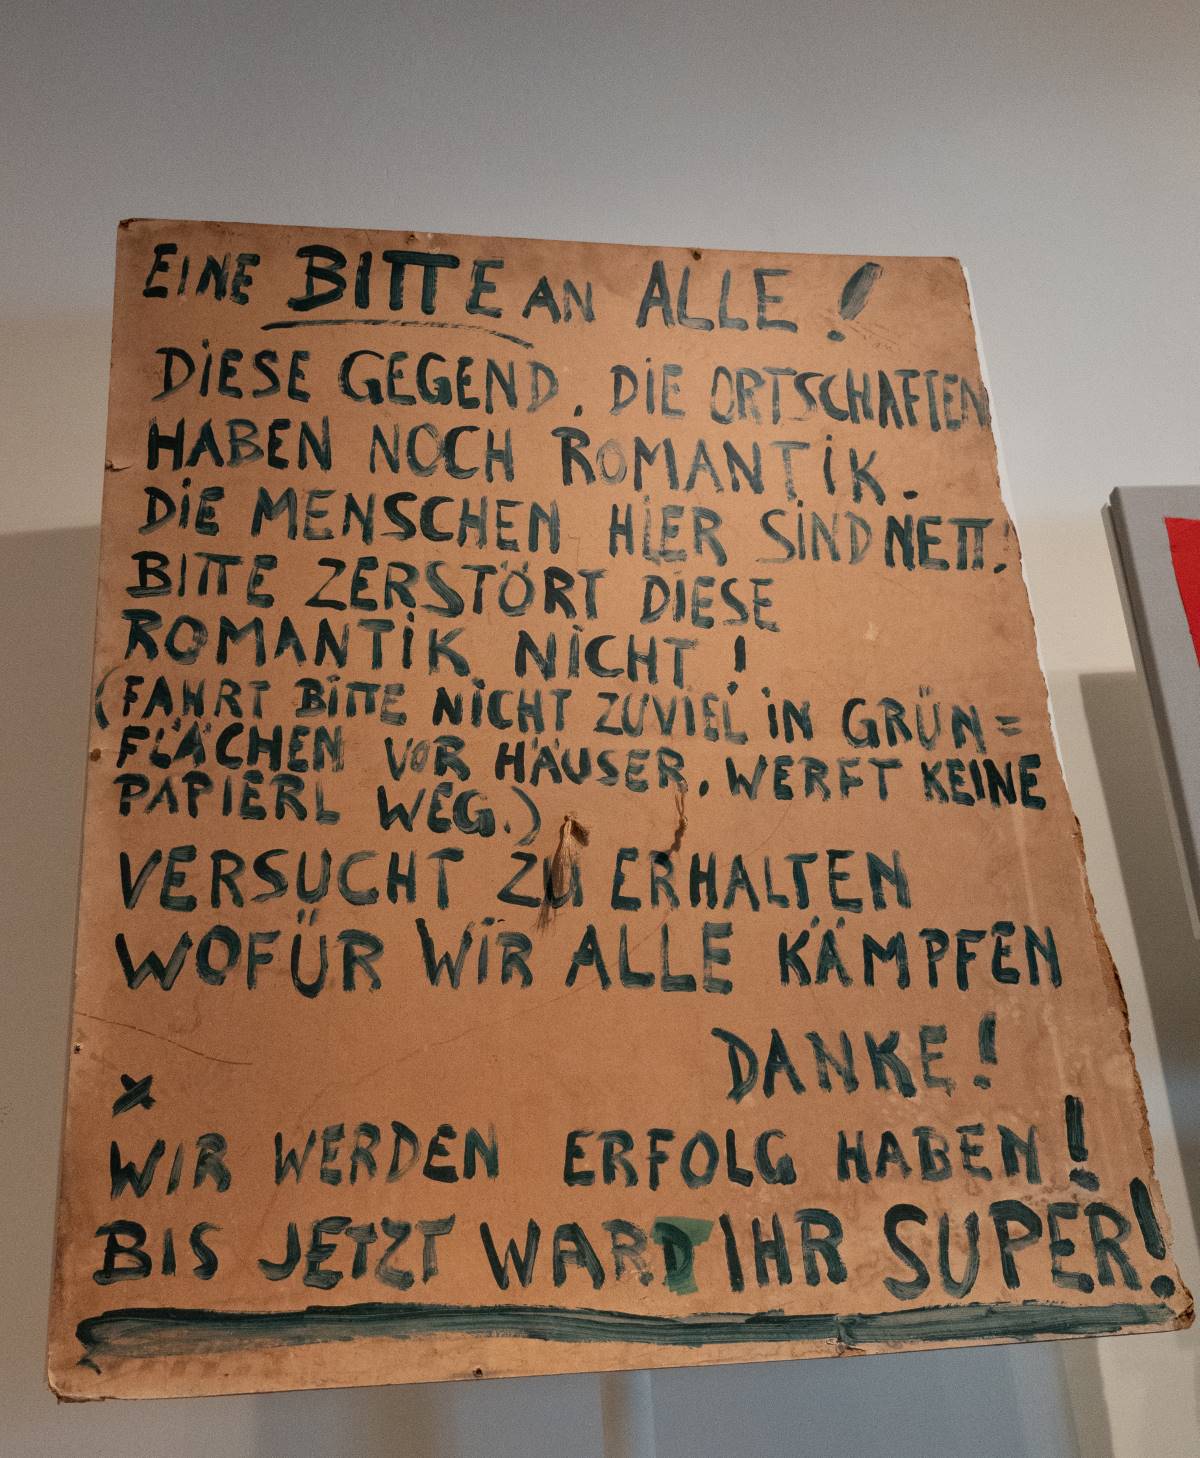 EINE BITTE AN ALLE!
DIESE GEGEND, DIE ORTSCHAFTEN
HABEN NOCH ROMANTIK.
DIE MENSCHEN HIER SIND NETT!
BITTE ZERSTÖRT DIESE
ROMANTIK NICHT!
(FAHRT BITTE NICHT ZUVIEL IN GRÜN=
FLÄCHEN VOR HÄUSER, WERFT KEINE
PAPIERL WEG.)
VERSUCHT ZU ERHALTEN
WOFÜR WIR ALLE KÄMPFEN
DANKE!
x
WIR WERDEN ERFOLG HABEN!
BIS JETZT WART IHR SUPER!